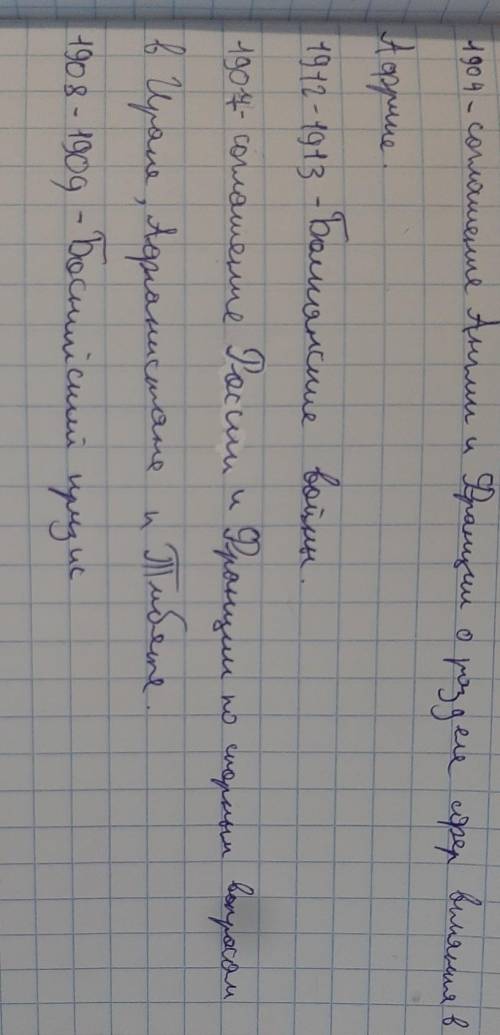 1904 - соглашение Англии и Франции о разделе сфер влияния в
Африке.
1912-1913 - Балканские войны.
1907 - соглашение России и Франции по спорным вопросам
в Иране, Афганистане и Тибете.
1908 - 1909 - Боснийский кризис